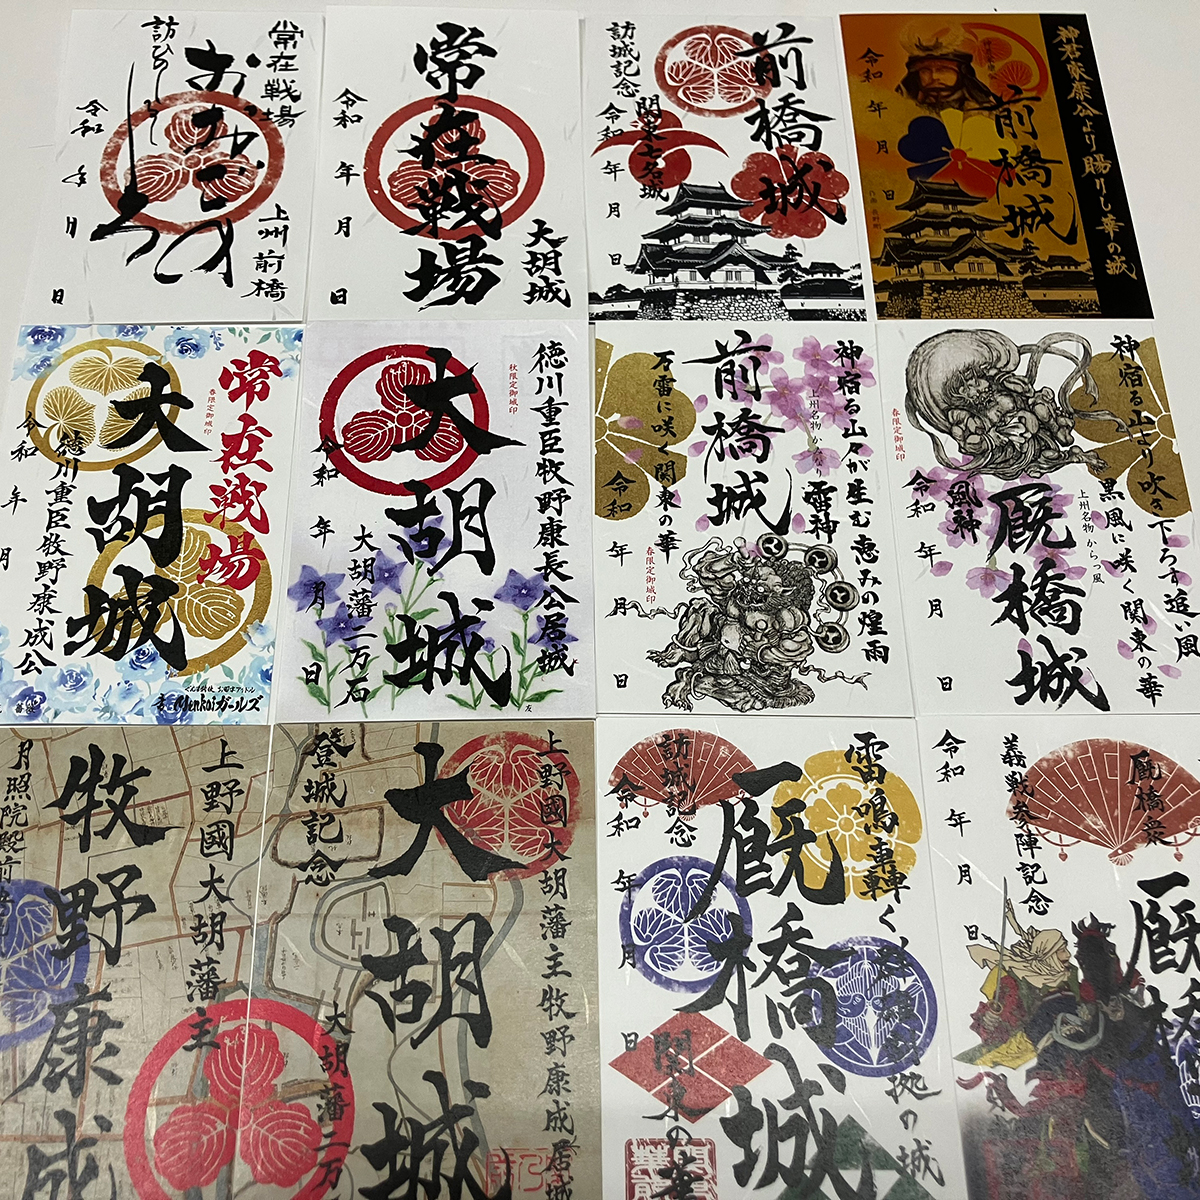 常在戦場
おおごの
上州前橋
令和
年
月
日
常在戦場
大胡城
令和
年
月
日
前橋城
関東七名城
訪城記念
令和
年
月
日
神君家康公より賜りし華の城
前橋城
令和
年
月
日
常在戦場
春限定御城印
大胡城
徳川重臣牧野康成公
令和
年
月
Menkoiガールズ
徳川重臣牧野康長公居城
秋限定御城印
大胡城
大胡藩二万石
令和
年
月
日
友
神宿る山々が生む恵みの煌雨
上州名物かみなり
雷神
前橋城
万雷に咲く関東の華
春限定御城印
令和
年
月
日
神宿る山より吹き下ろす追い風
黒風に咲く関東の華
上州名物からっ風
厩橋城
風神
春限定御城印
令和
年
月
日
上野國大胡藩主
牧野康成
月照院殿前
上野國大胡藩主牧野康成居城
大胡城
登城記念
大胡藩二万
雷鳴轟く
拠の城
厩橋城
訪城記念
関東の華
令和
年
月
日
厩橋衆
厩橋
義戦参陣記念
令和
年
月
日